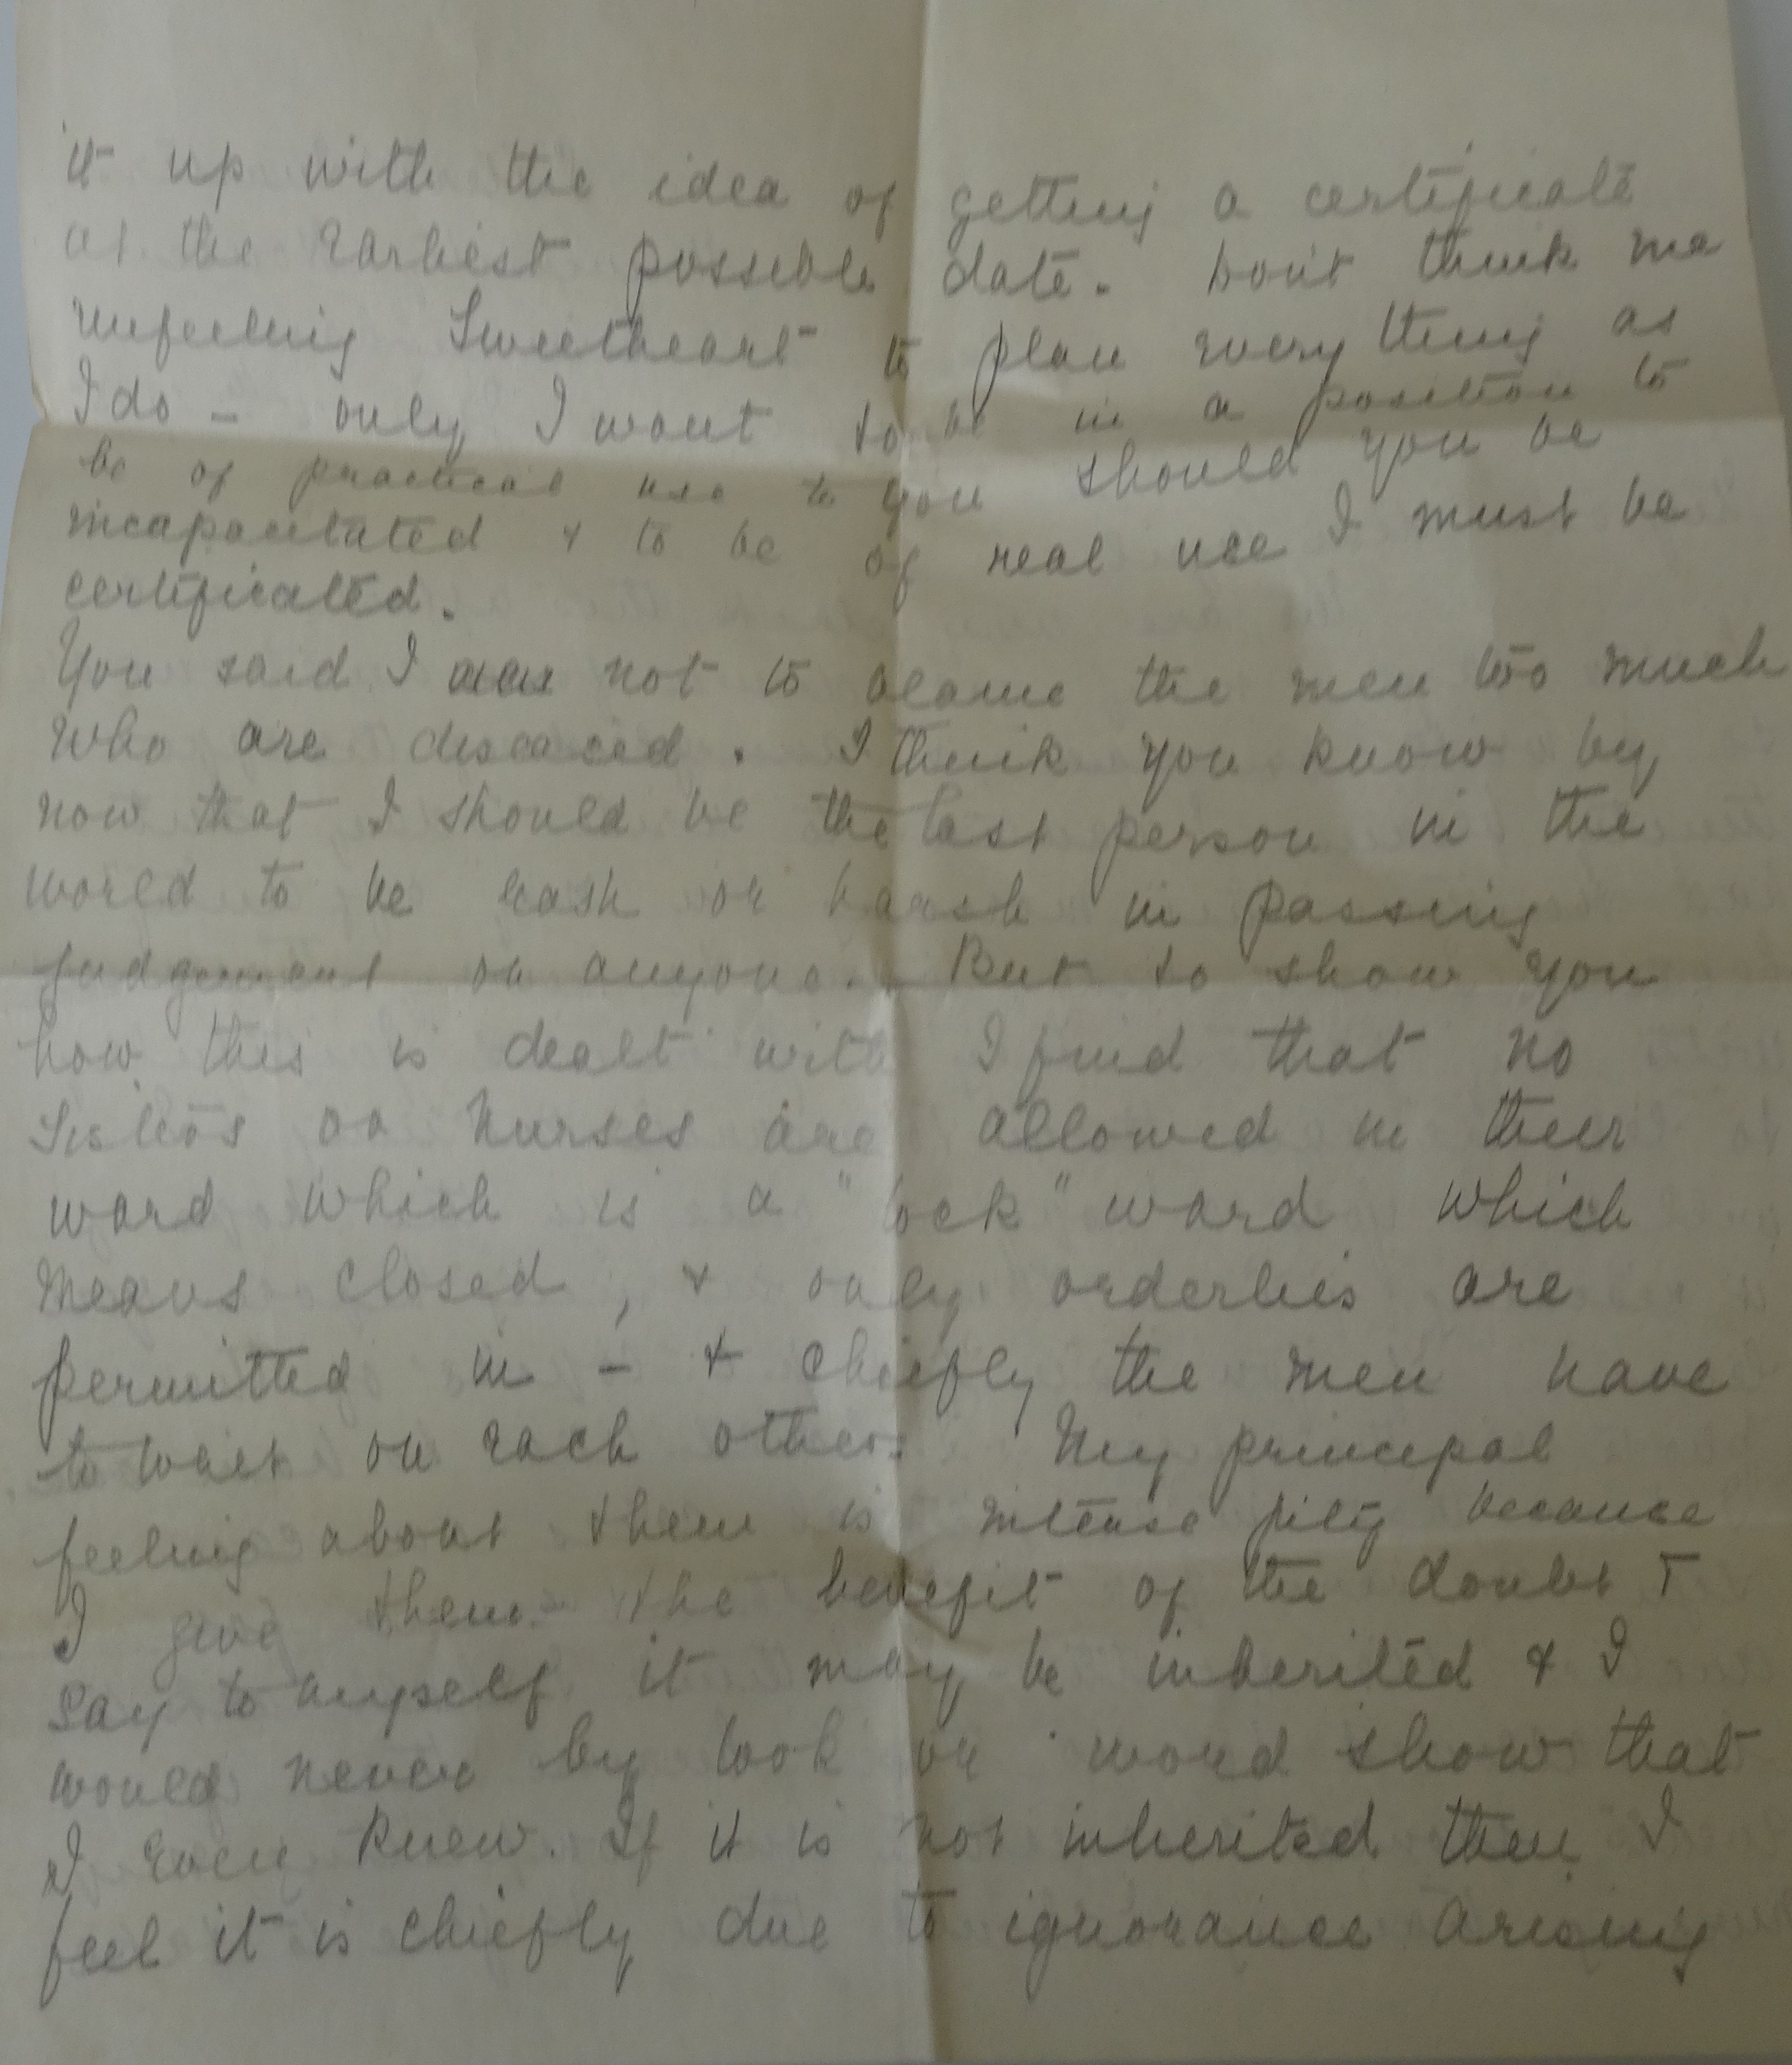 it up with the idea of getting a certificate
at the earliest possible date. Don't think me
unfeeling Sweetheart to plan everything as
I do - only I want to be in a position to
be of practical use to you should you be
incapacitated & to be of real use I must be
certificated.
You said I was not to blame the men too much
who are diseased. I think you know by
now that I should be the last person in the
world to be rash or harsh in passing
judgement on anyone. But to show you
how this is dealt with I find that no
Sisters or Nurses are allowed in their
ward which is a "lock" ward which
means closed, & only orderlies are
permitted in - & chiefly the men have
to wait on each other. My principal
feeling about them is intense pity because
I give them the benefit of the doubt &
say to myself it may be inherited & I
would never by look or word show that
I even knew. If it is not inherited then I
feel it is chiefly due to ignorance arising